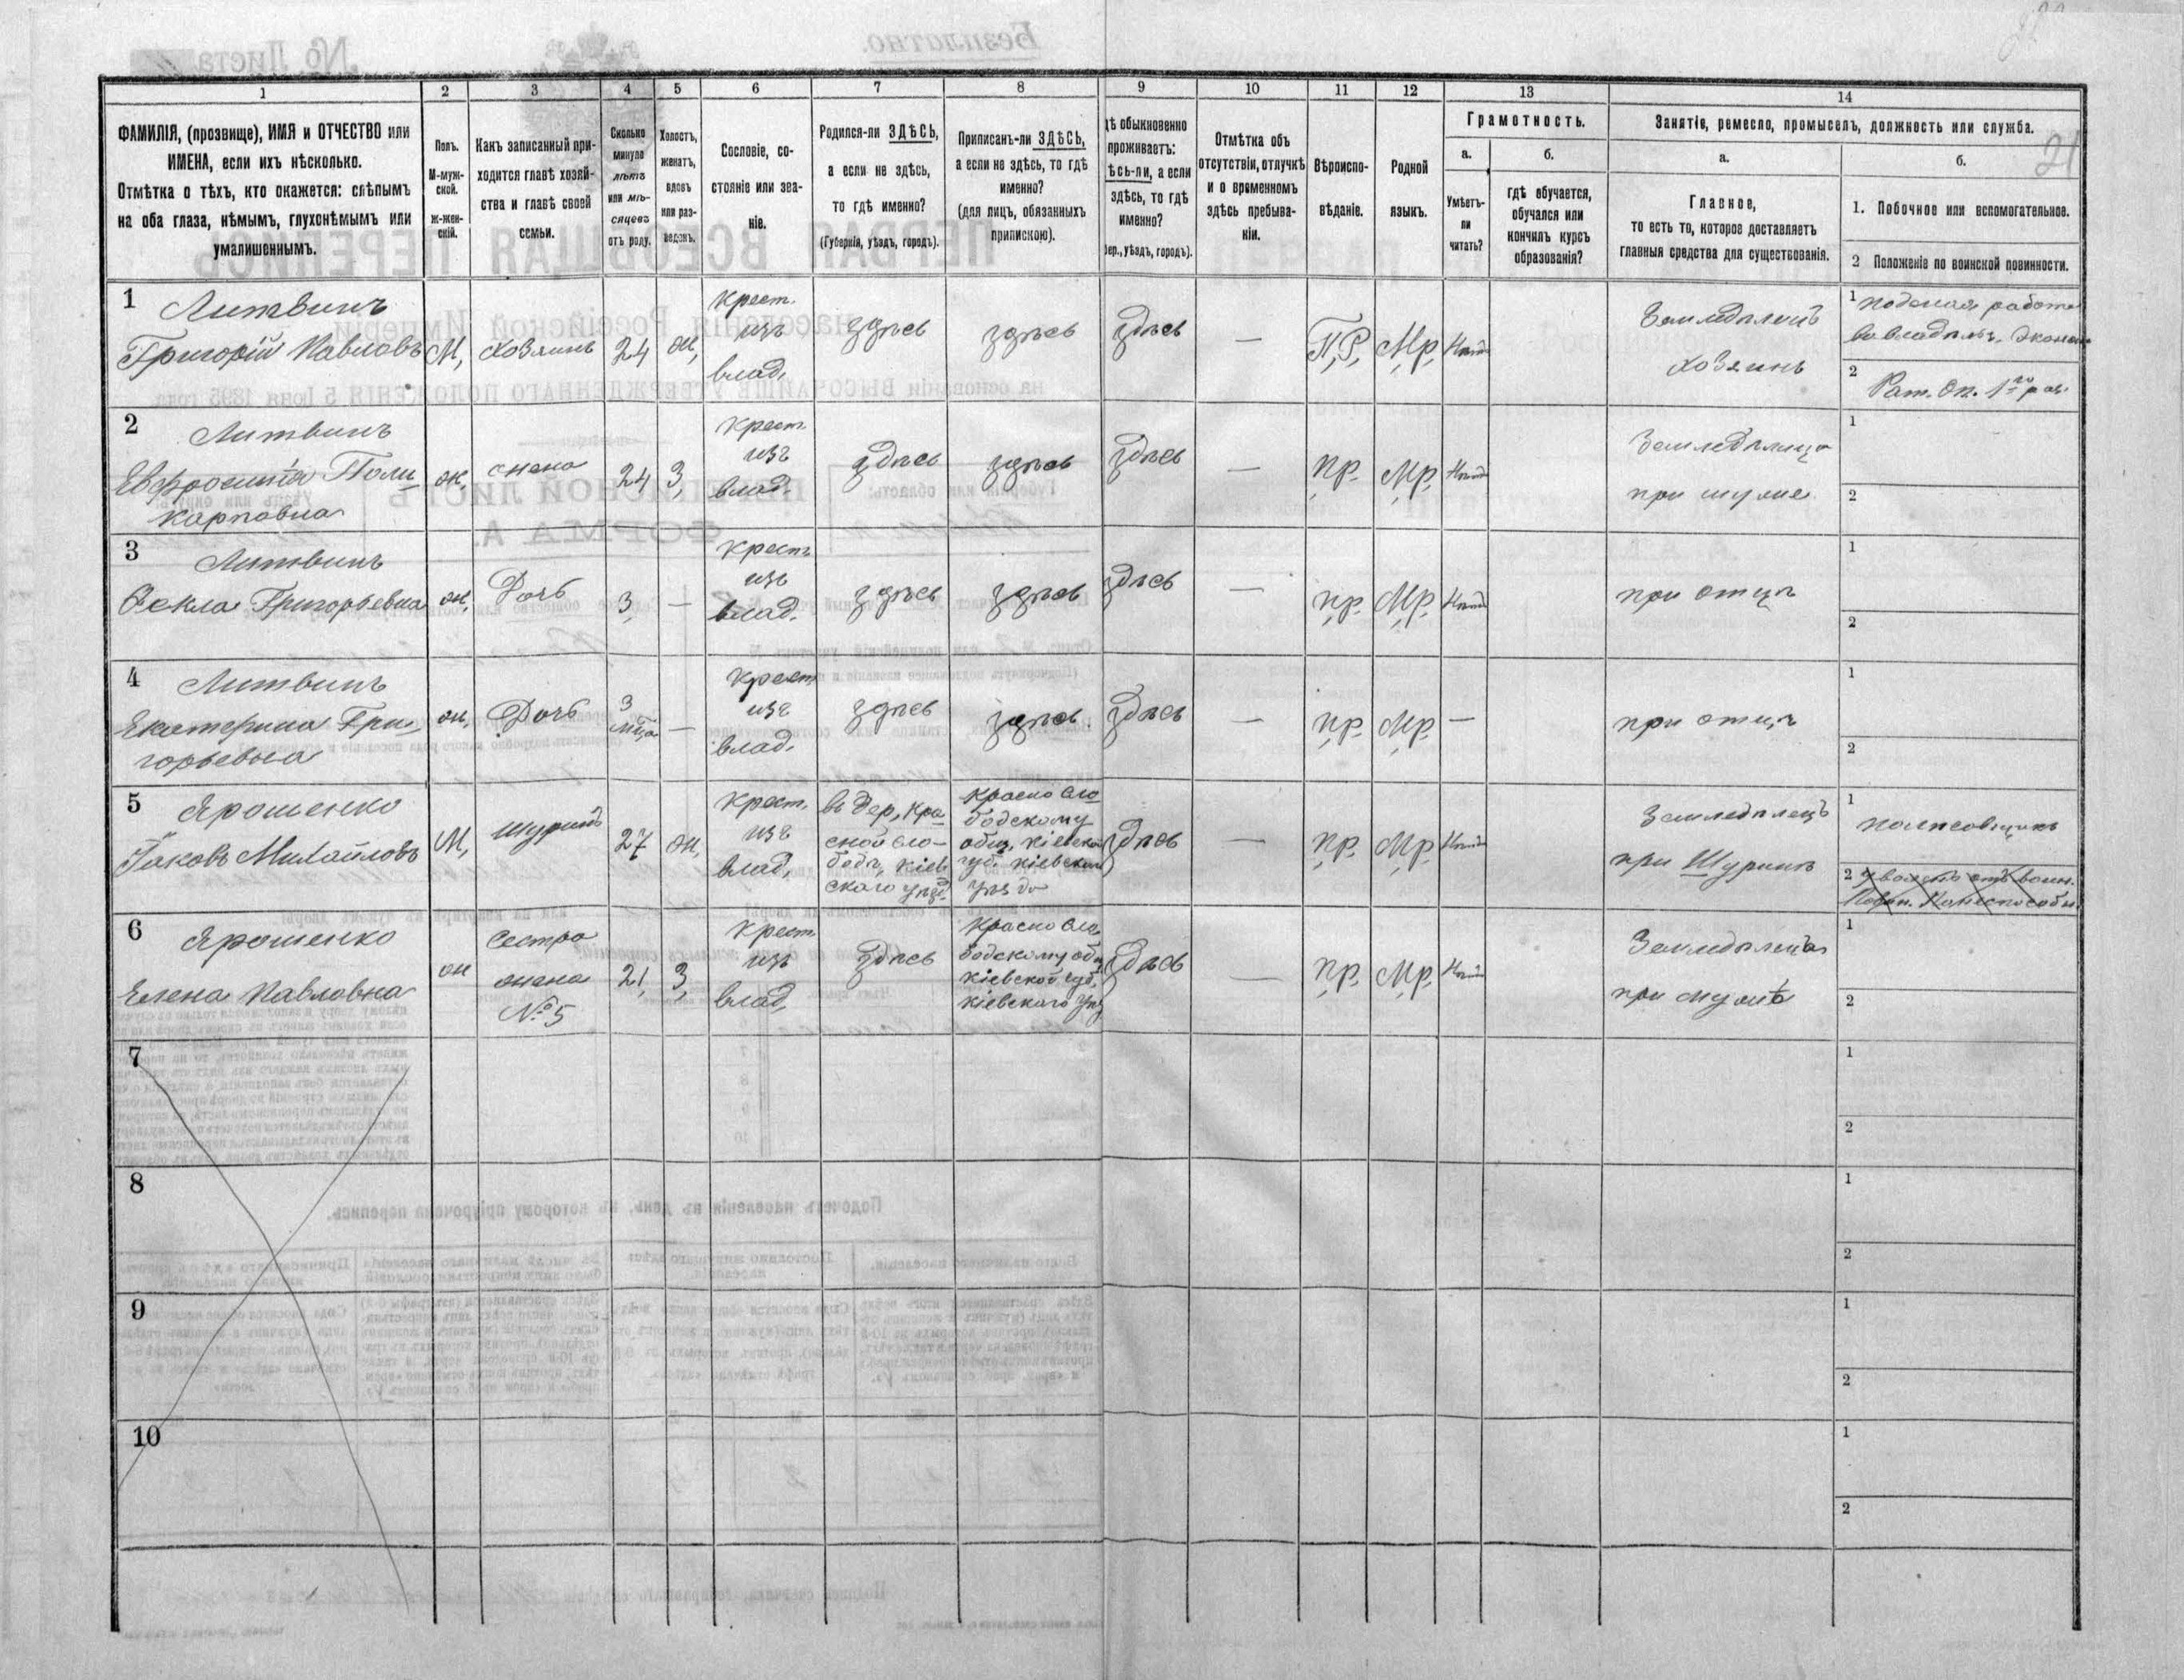 1
2
3
4
5
6
7
8
9
10
11
12
13
14
ФАМИЛІЯ, (прозвище), ИМЯ и ОТЧЕСТВО или
ИМЕНА, если ихъ нѣсколько.
Отмѣтка о тѣхъ, кто окажется: слѣпымъ
на оба глаза, нѣмымъ, глухонѣмымъ или
умалишеннымъ.
Полъ.
М-муж-
ской.
ж-жен-
скій.
Какъ записанный при-
ходится главѣ хозяй-
ства и главѣ своей
семьи.
Сколько
минуло
лѣтъ
или мѣ-
сяцевъ
отъ роду.
Холостъ,
женатъ,
вдовъ
или раз-
веденъ.
Сословіе, со-
стояніе или зва-
ніе.
Родился-ли ЗДѢСЬ,
а если не здѣсь,
то гдѣ именно?
(Губернія, уѣздъ, городъ).
Приписанъ-ли ЗДѢСЬ,
а если не здѣсь, то гдѣ
именно?
(для лицъ, обязанныхъ
припискою).
дѣ обыкновенно
проживаетъ:
ѣсь-ли, а если
здѣсь, то гдѣ
именно?
ер., уѣздъ, городъ).
Отмѣтка объ
отсутствіи, отлучкѣ
и о временномъ
здѣсь пребыва-
ніи.
Вѣроиспо-
вѣданіе.
Родной
языкъ.
Грамотность.
а.
б.
Умѣетъ-
ли
читать?
гдѣ обучается,
обучался или
кончилъ курсъ
образованія?
Занятіе, ремесло, промыселъ, должность или служба.
21
а.
б.
Главное,
то есть то, которое доставляетъ
главныя средства для существованія.
1. Побочное или вспомогательное.
2 Положеніе по воинской повинности.
1 Литвинъ
Григорій Павловъ
М,
хозяинъ
24
ж,
Крест.
изъ
влад.
здѣсь
здѣсь
здѣсь
—
П,Р,
Мр,
Земледѣлецъ
хозяинъ
1 Поденая работа
2
Рат. Оп. 1го раз.
2 Литвинъ
Евфросинія Поли
карповна
ж,
жена
24
З,
Крест.
изъ
влад.
здѣсь
здѣсь
здѣсь
—
пр.
Мр,
Земледѣлица
при мужѣ
1
2
3 Литвинъ
Ѳекла Григорьевна
ж,
Дочь
3
—
Крест.
изъ
влад.
здѣсь
здѣсь
здѣсь
—
пр.
Мр.
при отцѣ
1
2
4 Литвинъ
Екатерина Гри
горьевна
ж,
Дочь
3
мца
—
Крест.
изъ
влад.
здѣсь
здѣсь
здѣсь
—
пр.
Мр.
—
при отцѣ
1
2
5 Ярошенко
Іаковъ Михайловъ
М,
шуринъ
27
ж,
Крест.
изъ
влад,
въ дер, Кра
сной Сло-
бодѣ, Кіев
скаго уѣзд.
Красно Сло
бодскому
общ. Кіевской
губ. Кіевскаго
уѣзда
здѣсь
—
пр.
Мр,
Земледѣлецъ
при Шуринѣ
1
2
6 Ярошенко
Елена Павловна
ж
сестра
жена
№ 5
21,
З,
Крест
изъ
влад,
здѣсь
Красно Сло
бодскому общ
Кіевской губ,
Кіевскаго уѣз
здѣсь
—
пр.
Мр.
при мужѣ
1
2
7
1
2
8
1
2
9
1
2
10
1
2